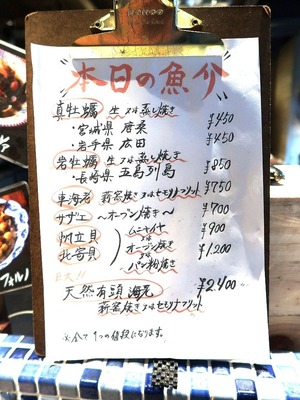 本日の魚介
真牡蠣 生 又は 蒸し焼き
・宮城県 唐桑 ¥450
・岩手県 広田 ¥450
岩牡蠣 生 又は 蒸し焼き
・長崎県 五島列島 ¥850
車海老 薪窯焼き又はセモリナフリット ¥750
サザエ 〜オーブン焼き〜 ¥700
帆立貝 ムニエル ¥900
又は
オーブン焼き
北寄貝 又は ¥1,200
パン粉焼き
巨大!!
天然有頭海老 ¥2,400
薪窯焼き又はセモリナフリット
※全て1つの値段になります。